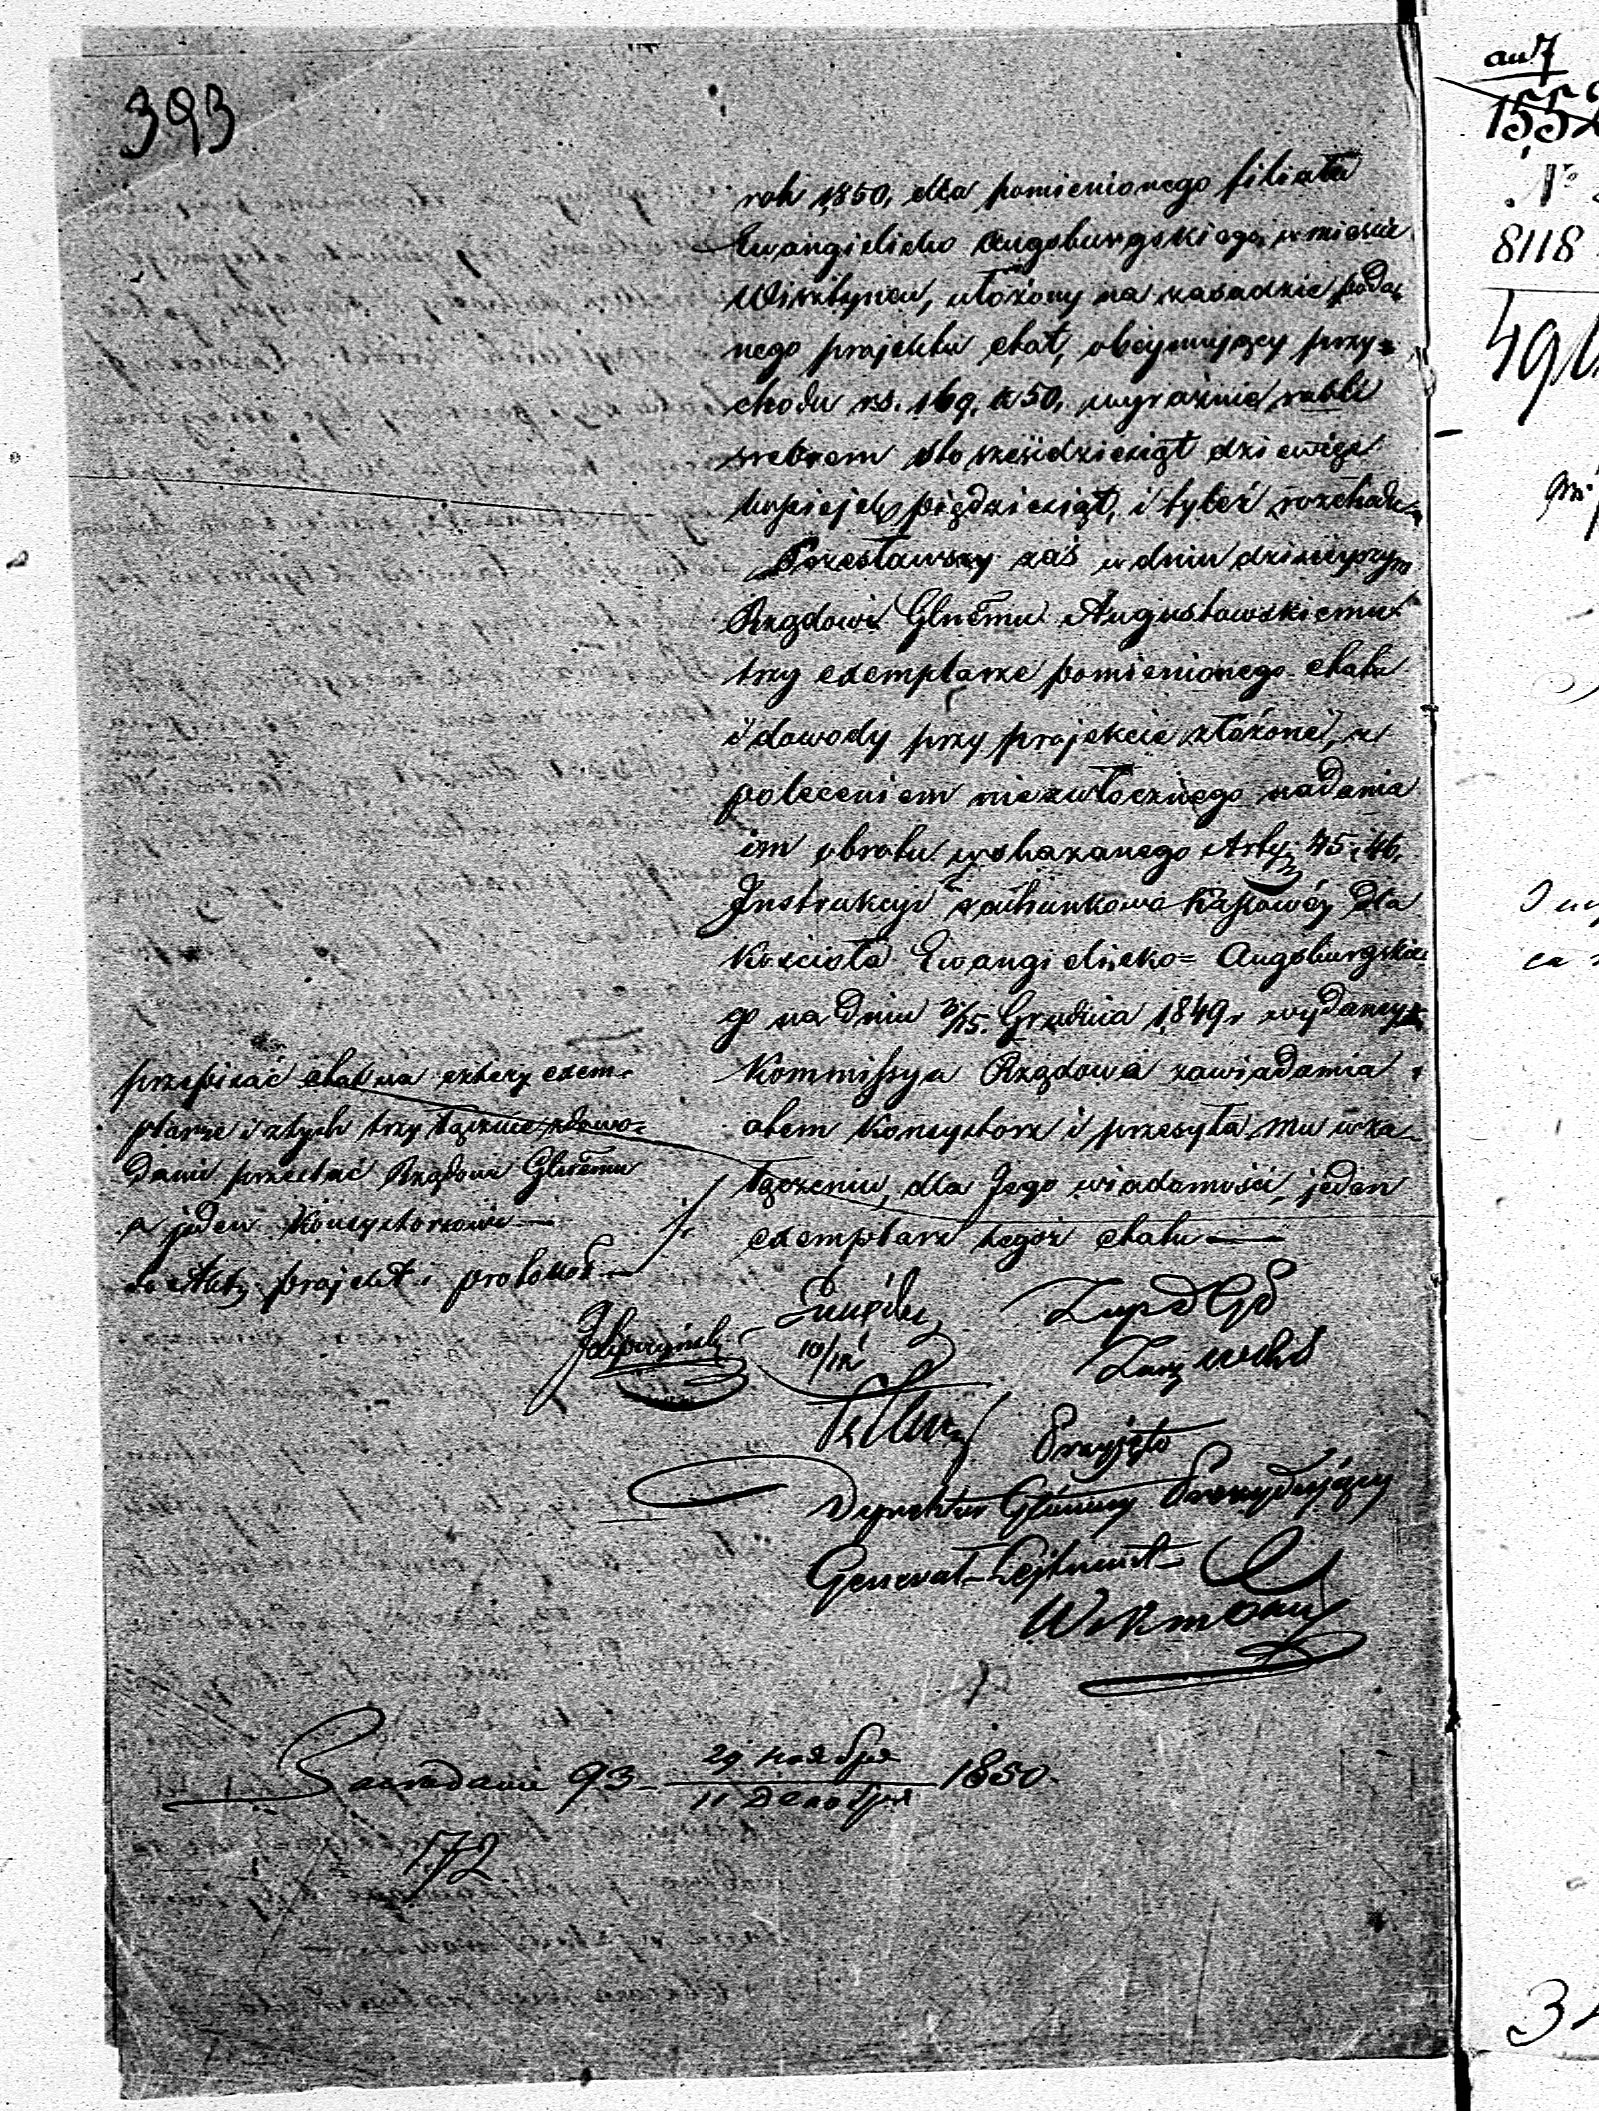 393
rok 1850, dla pomienionego filiału
Ewangielicko Augsburgskiego, w mieście
Wisztyńcu, ułożony na zasadzie poda-
nego projektu etat, obejmujący przy-
chodu rs. 169, k 50, wyraźnie rubli
srebrem sto sześćdziesiąt dziewięć
kopiejek pięćdziesiąt, i tyleż rozchodu
Przesławszy zaś w dniu dzisiejszym
Rządowi Glnemu Augustowskiemu
trzy exemplarze pomienionego etatu
i dowody przy projekcie złożone, z
poleceniem niezwłocznego nadania
im obrotu wskazanego Arty: 45 i 46,
Instrukcyi rachunkowo Kassowéj dla
Kościoła Ewangielicko= Augsburgskie-
go na dniu 3/15. Grudnia 1849 r wydanéj
Kommissya Rządowa zawiadamia
o tem Konsystorz i przesyła mu w za-
łączeniu, dla Jego wiadomości, jeden
exemplarz tegoż etatu —
przepisać etat na cztery exem-
plarze i z tych trzy łącznie z dowo-
dami przesłać Rządowi Glnemu
a jeden Konsystorzowi —
do Akt, projekt i protokół —
10/IX
Przyjęto
Dyrektor Główny Prezydujący
Generał-Lejtnant
93 29 ноября / 11 Декабря 1850.
172
1552
№
8118